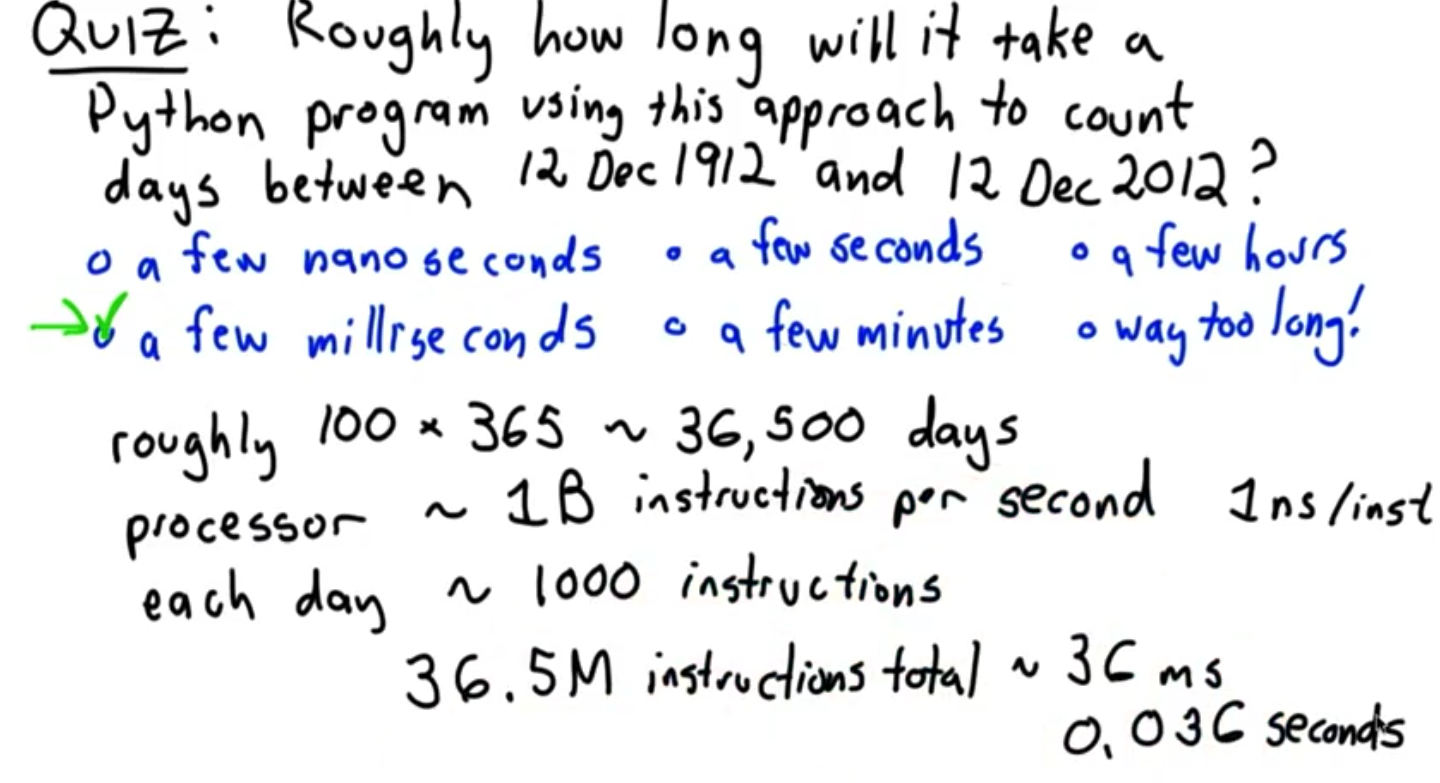 QUIZ: Roughly how long will it take a
Python program using this approach to count
days between 12 Dec 1912 and 12 Dec 2012?
o a few nanoseconds o a few seconds o a few hours
→✓o a few milliseconds o a few minutes o way too long!
roughly 100 * 365 ~ 36,500 days
processor ~ 1B instructions per second 1ns/inst
each day ~ 1000 instructions
36.5M instructions total ~ 36 ms
0.036 seconds